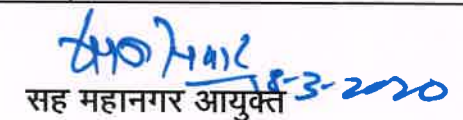 18-3-2020
सह महानगर आयुक्त